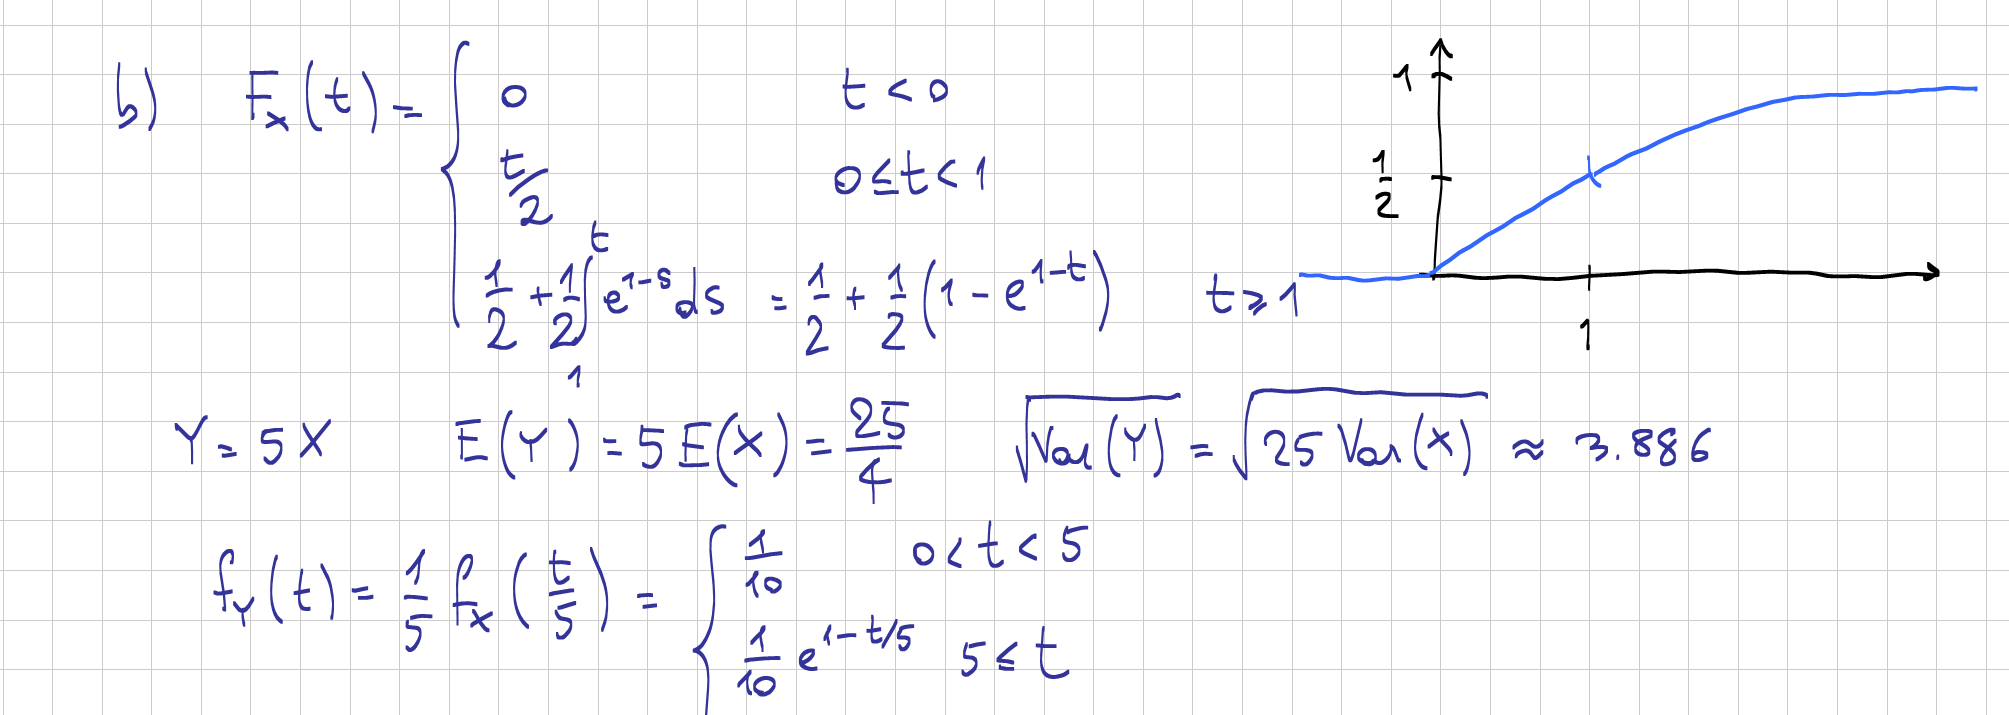 b) F_X(t) = { 0 t < 0
t/2 0 ≤ t < 1
1/2 + 1/2 ∫_1^t e^{1-s} ds = 1/2 + 1/2 (1 - e^{1-t}) t ≥ 1
1
1/2
1
Y = 5X E(Y) = 5 E(X) = 25/4 √Var(Y) = √25 Var(X) ≈ 3.886
f_Y(t) = 1/5 f_X(t/5) = { 1/10 0 < t < 5
1/10 e^{1-t/5} 5 ≤ t